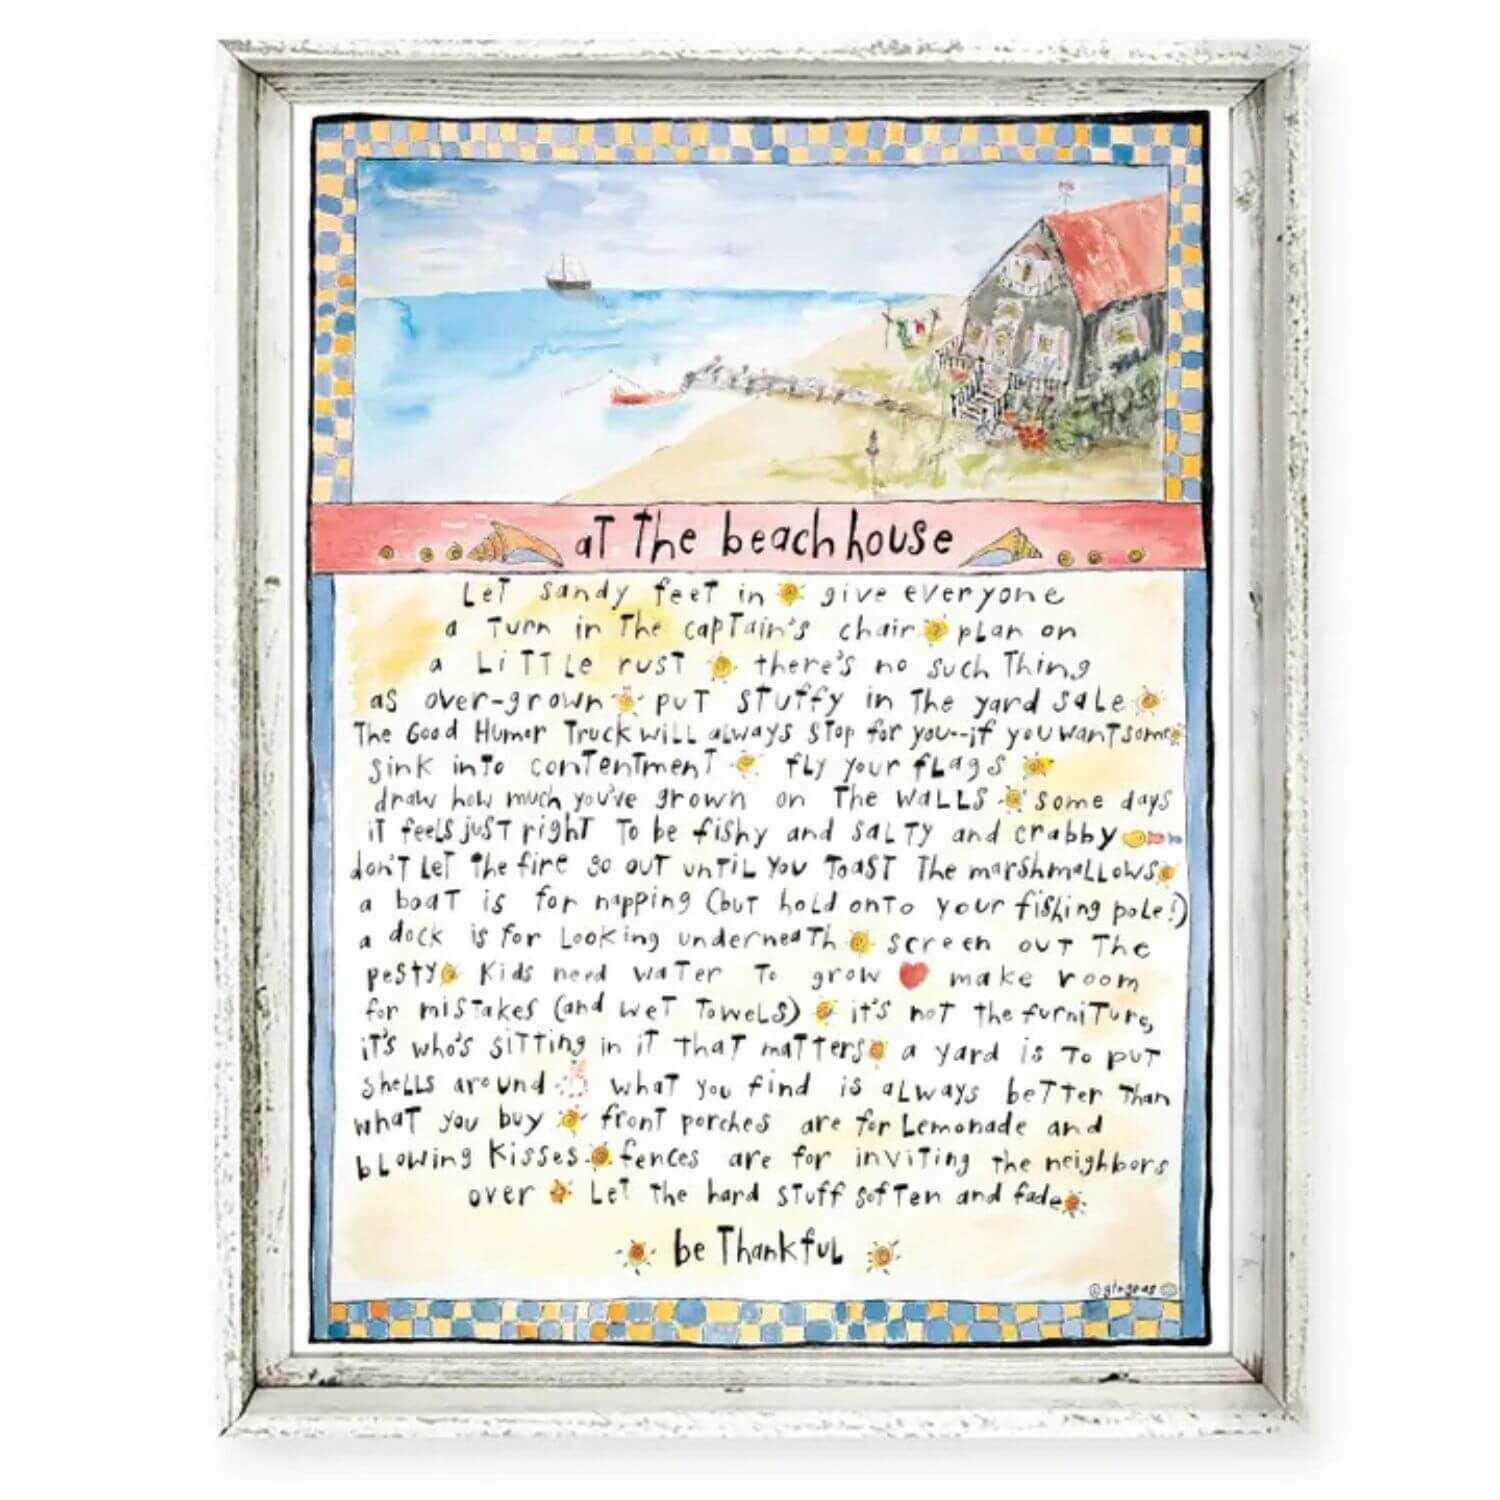 at the beach house
Let sandy feet in give everyone
a turn in the captain's chair plan on
a little rust there's no such thing
as over-grown put stuffy in the yard sale
The Good Humor Truck will always stop for you--if you want some
sink into contentment fly your flags
draw how much you've grown on the walls some days
it feels just right to be fishy and salty and crabby
don't let the fire go out until you toast the marshmallows
a boat is for napping (but hold onto your fishing pole!)
a dock is for looking underneath screen out the
pesty kids need water to grow make room
for mistakes (and wet towels) it's not the furniture,
it's who's sitting in it that matters a yard is to put
shells around what you find is always better than
what you buy front porches are for lemonade and
blowing kisses fences are for inviting the neighbors
over let the hard stuff soften and fade
be thankful